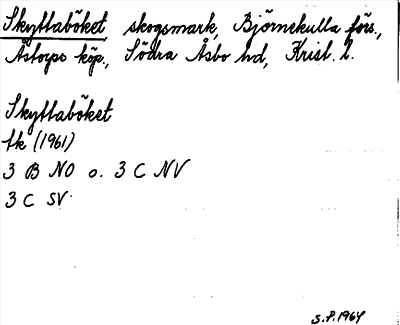 Skyttaböket skogsmark, Björnekulla förs.,
Åstorps köp., Södra Åsbo hd, Krist. l.
Skyttaböket
tk (1961)
3 B NO o. 3 C NV
3 C SV
S.P. 1964